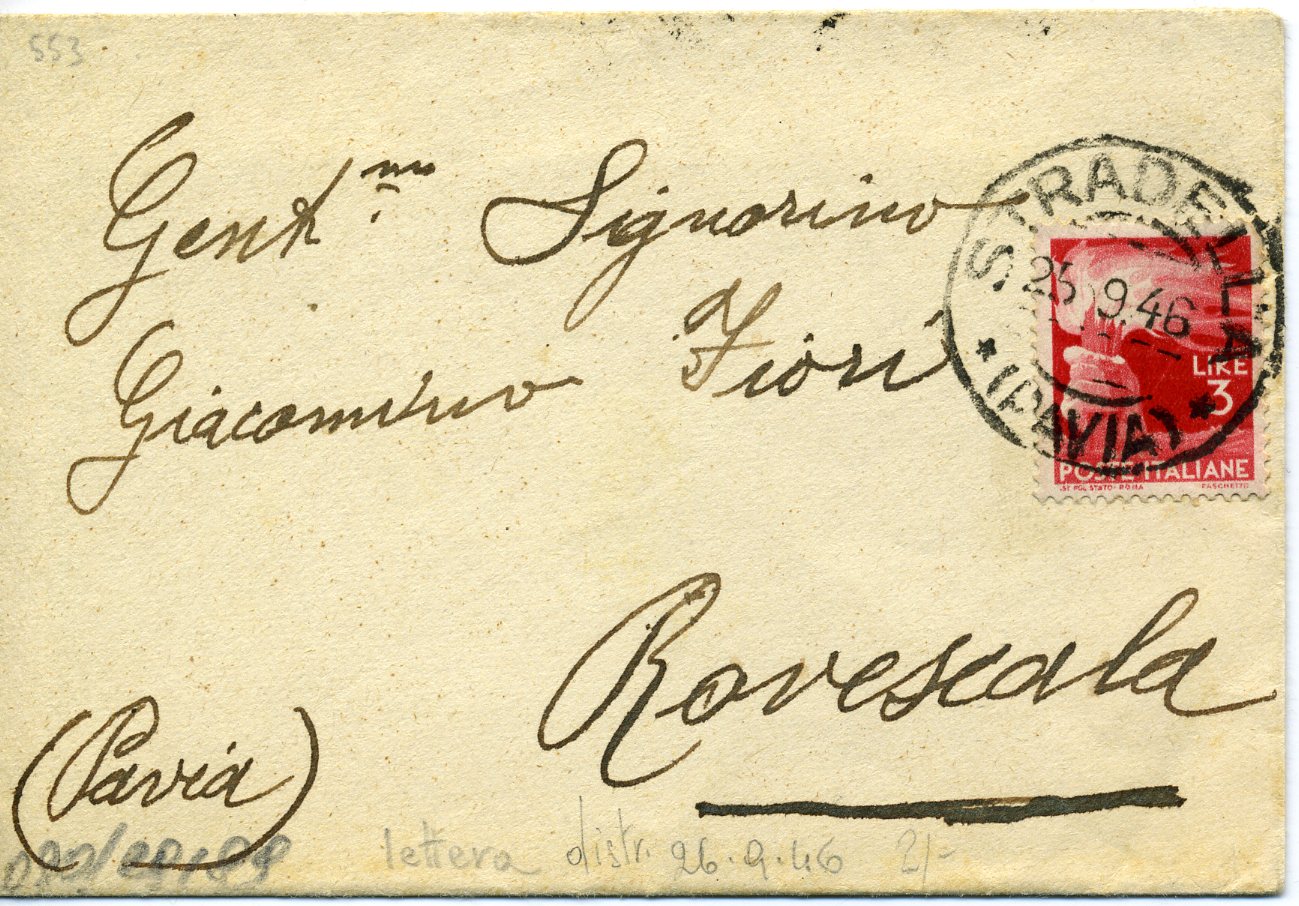 553
Gent.mo Signorino
Giacomino Fiori
STRADELLA
25.9.46
(PAVIA)
LIRE
3
POSTE ITALIANE
IST. POL. STATO-ROMA FASCHETTI
Rovescala
(Pavia)
lettera distr. 26.9.46 2/-